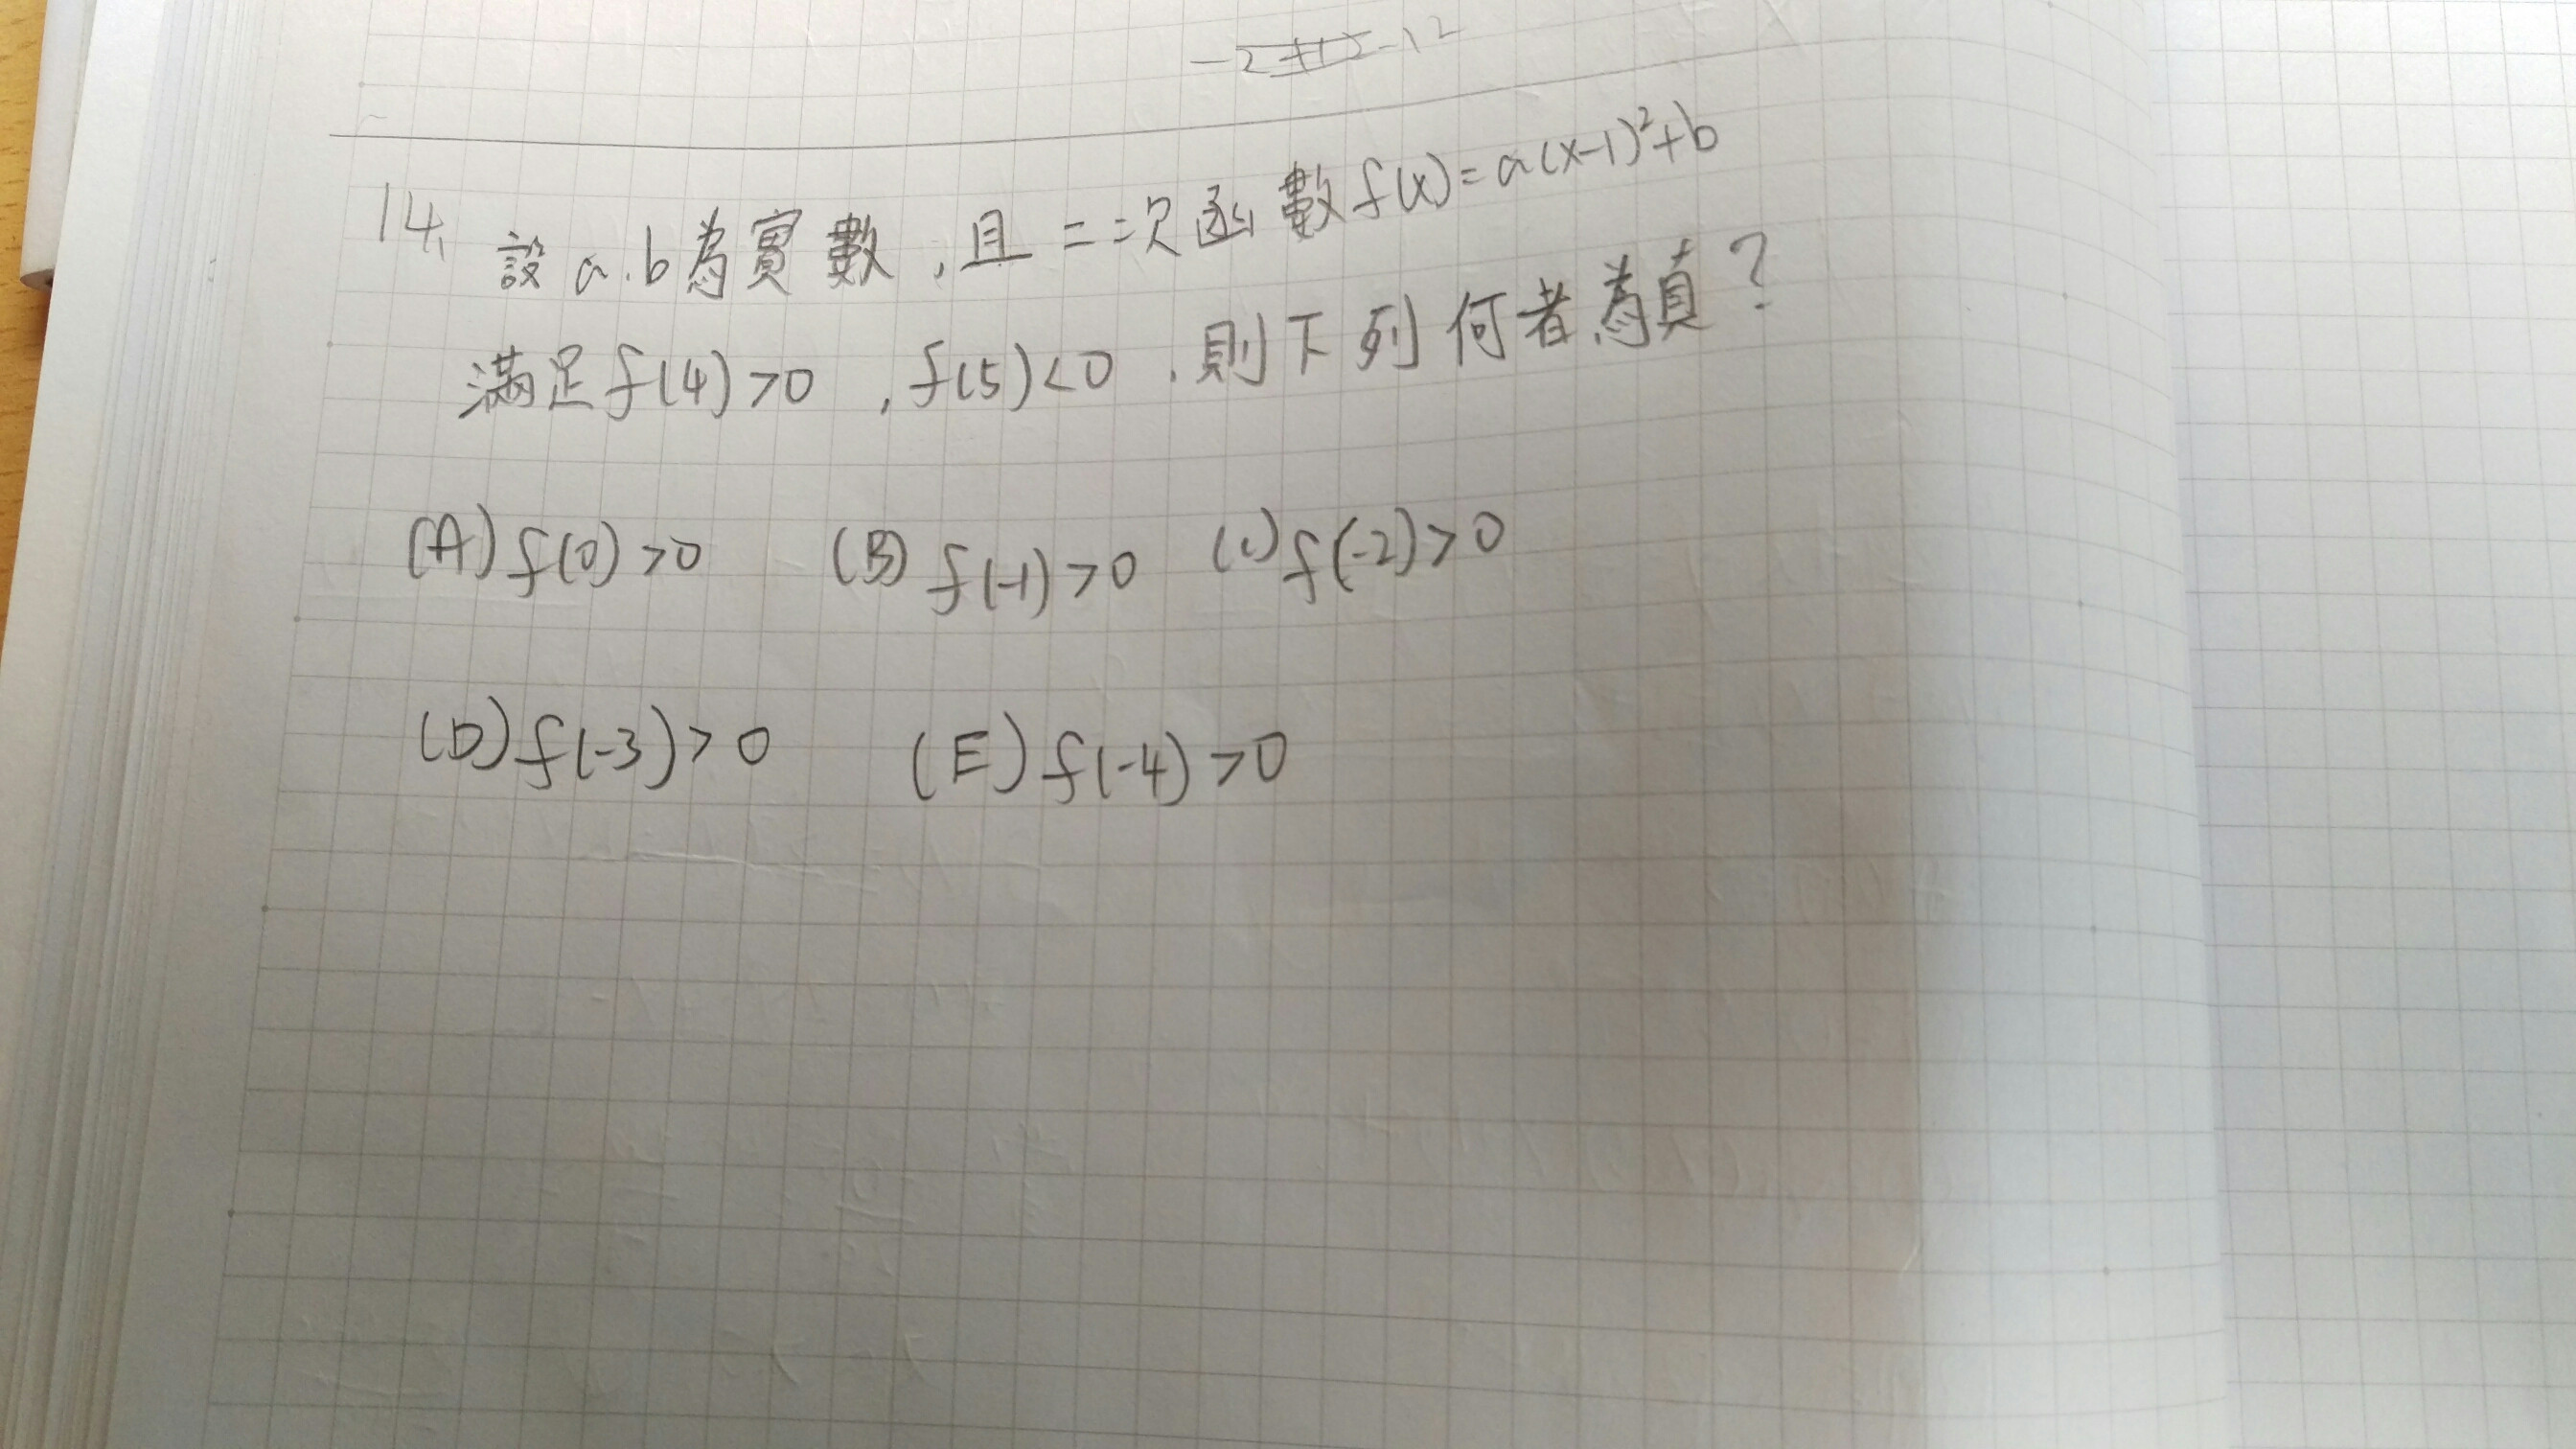 14. 設a.b為實數,且二次函數f(x)=a(x-1)²+b
滿足f(4)>0 ,f(5)<0 .則下列何者為真?
(A) f(0)>0 (B) f(-1)>0 (C) f(-2)>0
(D) f(-3)>0 (E) f(-4)>0